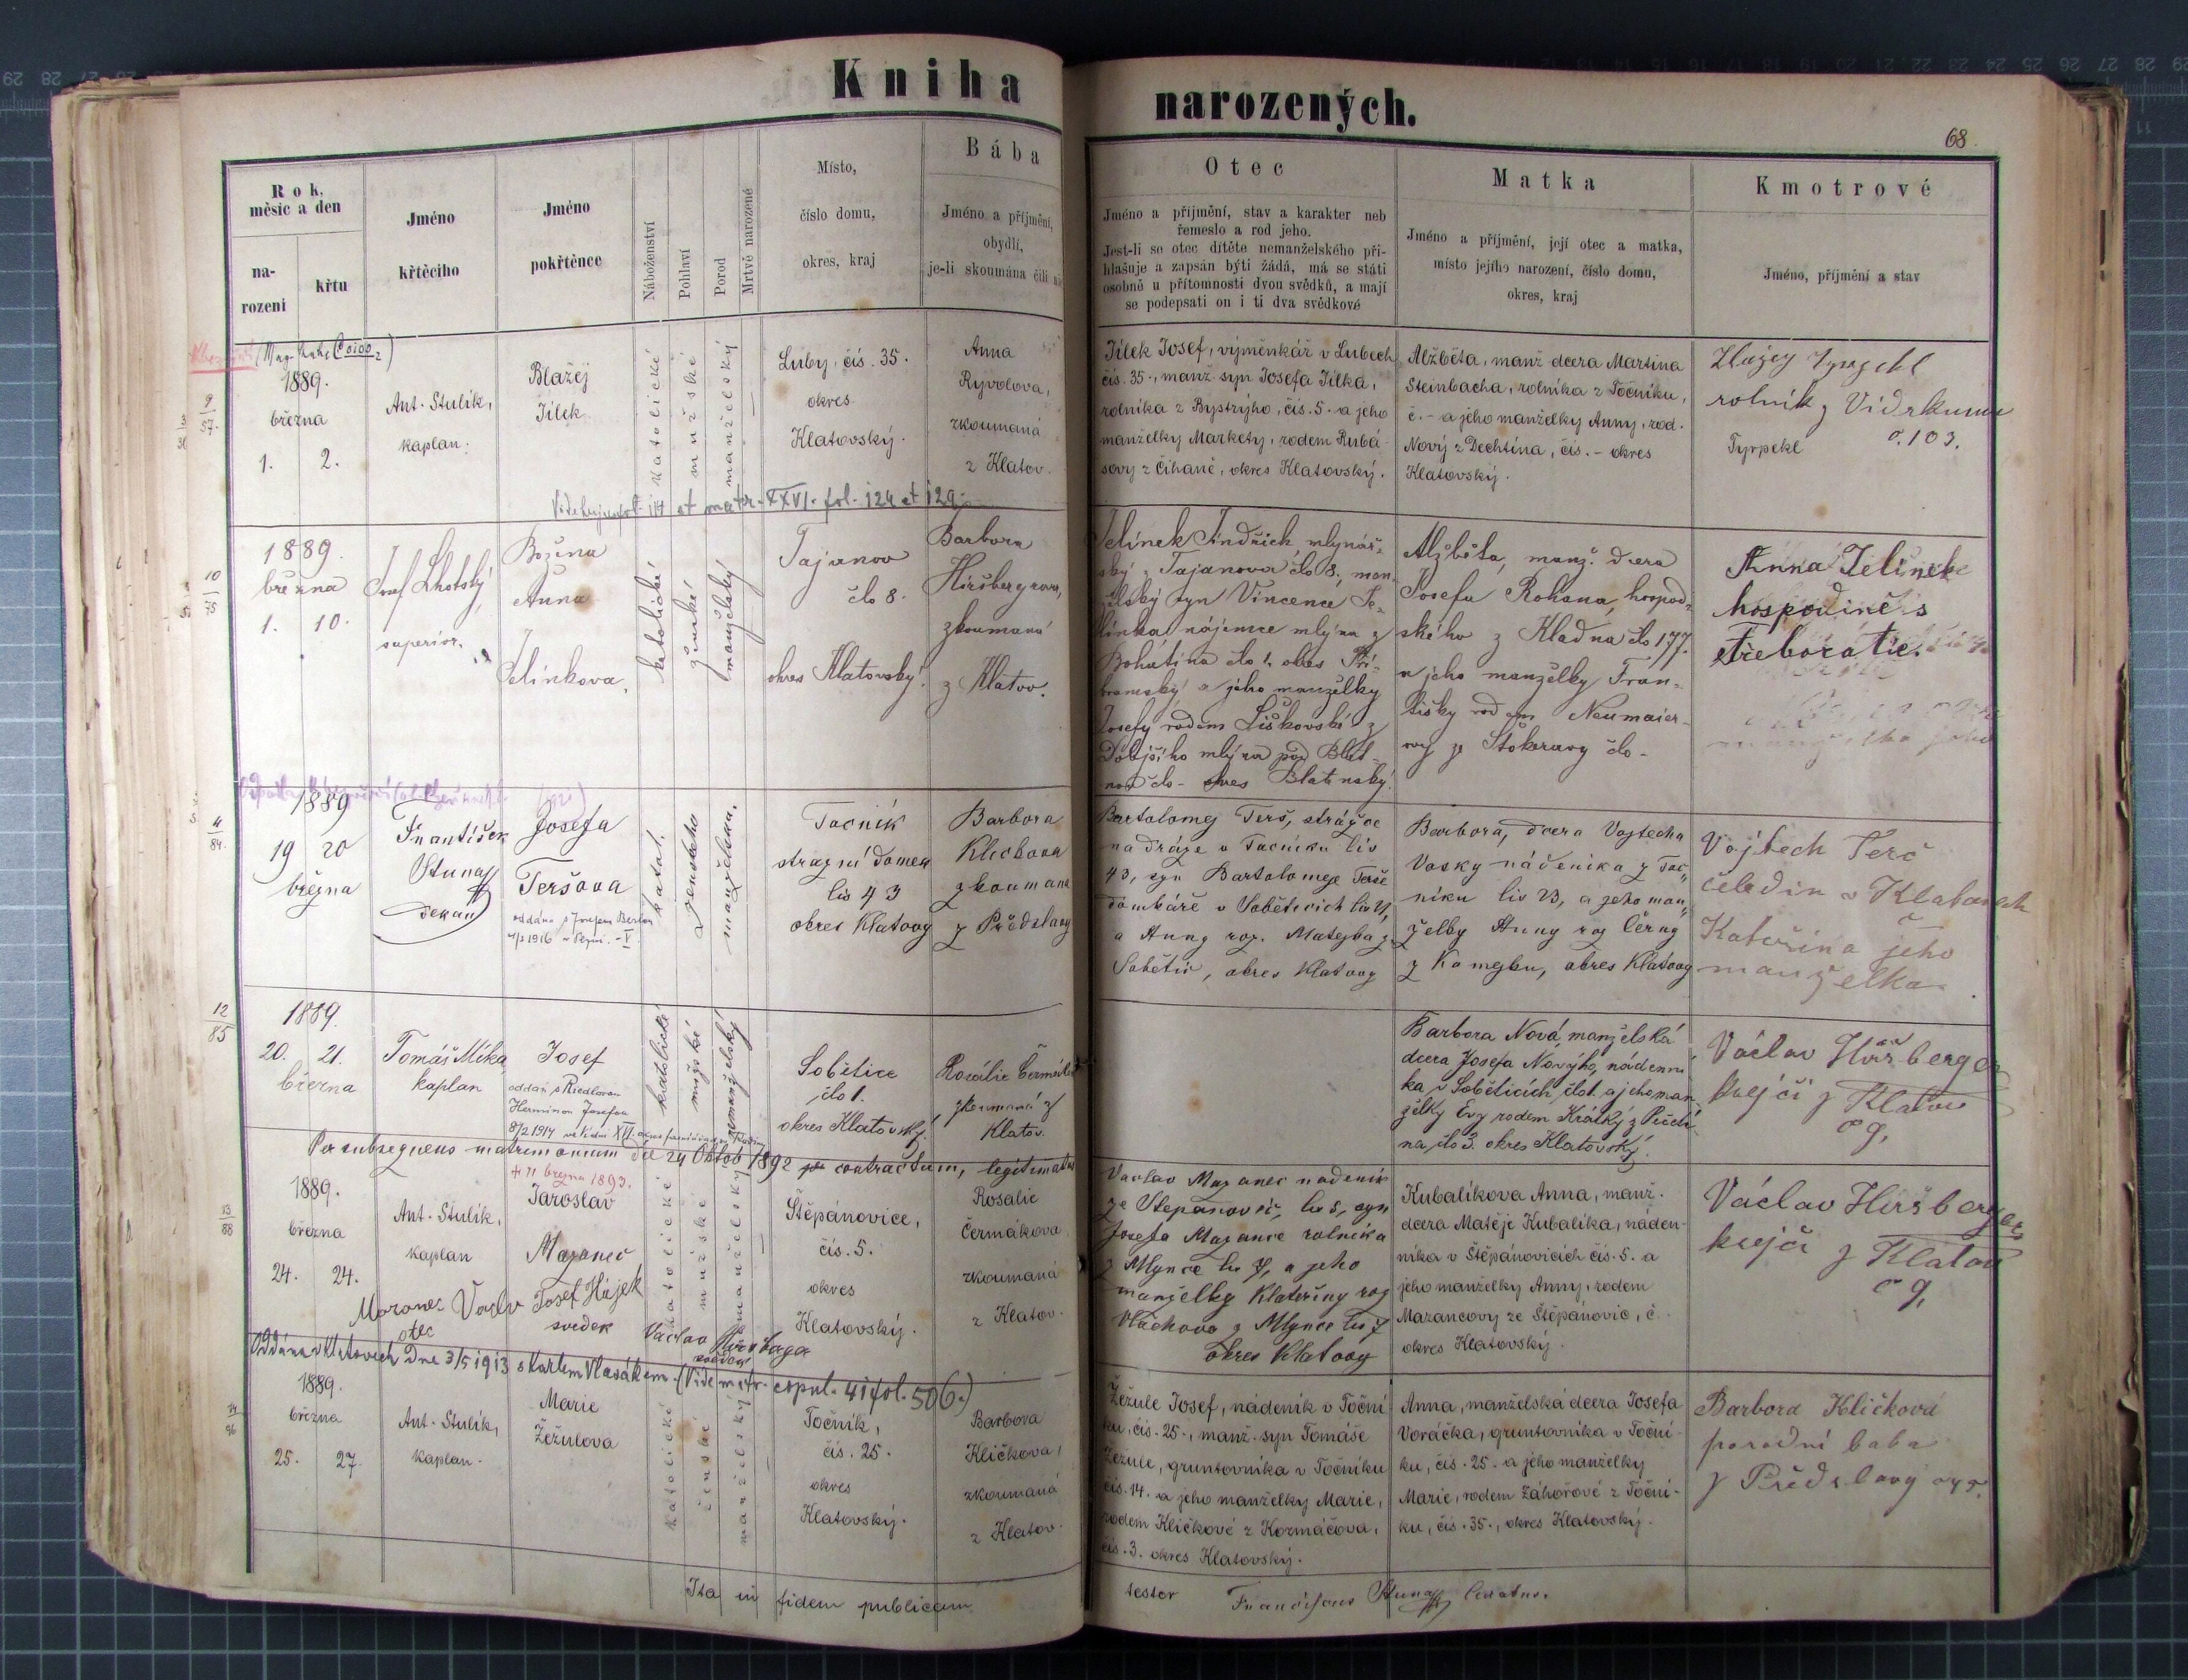 Kniha
narozených.
68
Rok,
měsíc a den
na-
rození
křtu
Jméno
křtěcího
Jméno
pokřtěnce
Náboženství
Pohlaví
Porod
Mrtvě narozené
Místo,
číslo domu,
okres, kraj
Bába
Jméno a příjmění,
obydlí,
je-li skoumána čili
Otec
Jméno a příjmění, stav a karakter neb
řemeslo a rod jeho.
Jest-li se otec dítěte nemanželského při-
hlašuje a zapsán býti žádá, má se státi
osobně u přítomnosti dvou svědků, a mají
se podepsati on i ti dva svědkové
Matka
Jméno a příjmění, její otec a matka,
místo jejího narození, číslo domu,
okres, kraj
Kmotrové
Jméno, příjmění a stav
9
57.
1889.
března
1. 2.
Ant. Stulík,
kaplan.
Blažej
Jílek
katolické
mužské
manželský
Luby, čís. 35.
okres
Klatovský.
Anna
Ryvolova,
zkoumaná
z Klatov.
Jílek Josef, výměnkář v Lubech
čís. 35., manž. syn Josefa Jílka,
rolníka z Bystrýho, čís. 5. a jeho
manželky Markety, rodem Rubá-
sovy z Čihaně, okres Klatovský.
Alžběta, manž dcera Martina
Steinbacha, rolníka z Točníku,
č. – a jeho manželky Anny, rod.
Nový z Dechtína, čís. – okres
Klatovský.
rolník z
č. 103.
Tyrpekl
et matr. XXVI. fol. 124 et 129.
10
75
1889.
března
1. 10.
Josef Lhotský,
superior.
Božena
Anna
Jelínkova.
katolické
ženské
manželský
Tajanov
čło 8.
okres Klatovský.
Barbora
Hiršbergrova,
zkoumaná
z Klatov.
Jelínek Jindřich, mlynář-
ský z Tajanova čło 8., man-
želský syn Vincence Je-
línka nájemce mlýna z
Bohutína čło 1. okres Pří-
bramský a jeho manželky
Josefy rodem Liškovské z
Dobjšího mlýna pod Blat-
nou čło - okres Blatenský.
Alžběta, manž. dcera
Josefa Rohana, hospod-
ského z Kladna čło 177.
a jeho manželky Fran-
tišky rodem Neumaier-
rovy ze Štokeravy čło -
Anna Jelínek
hospodině s
Třeboratic.
11
84.
1889
19 20
března
František
Stunaff
děkan
Josefa
Teršova
oddána s Josefem
katol.
ženského
manželska.
Točník
stražní domek
čís 43
okres Klatovy
Barbora
Kličkova
zkoumana
z Předslavy
Bartolomej Terš, strážce
na dráze v Točníku čís
43, syn Bartoloměje Terše
domkáře v Soběticích čís 4,
a Anny roz. Matejka z
Sobětic, okres Klatovy
Barbora, dcera Vojtecha
Vosky nádeníka z Toč-
níku čís 23, a jeho man-
želky Anny roz Černy
z Komejku, okres Klatovy
Vojtech Terč
čeledin v Klatovech
Kateřina jeho
manželka.
12
85
1889.
20. 21.
března
Tomáš Míka
kaplan
Josef
oddán s Riedlovou
Herminou Josefou
8/2 1914 ve Vídni XVI.
katolické
mužské
nemanželský
Sobětice
čło 1.
okres Klatovský.
Rosálie Čermáková
zkoumaná z
Klatov.
Barbora Nová, manželská
dcera Josefa Nového, nádenní-
ka v Soběticích, čło 1. a jeho man-
želky Evy rodem Krátký z Pučlí-
na, čło 3. okres Klatovský.
Václav Hiršberger
krejčí z Klatov
č 9.
Per subsequens matrimonium die 24 Oktob 1892 contractum, legitimatus
† 11 března 1893.
13
88
1889.
března
24. 24.
Ant. Stulík,
kaplan
Jaroslav
Mazanec
katolické
mužské
nemanželský
Štěpánovice,
čís. 5.
okres
Klatovský.
Rosalie
Čermákova
zkoumaná
z Klatov.
Vaclav Mazanec nadeník
ze Štepanovic, čís 5, syn
Josefa Mazance rolníka
z Mlynce čís 7, a jeho
manželky Kateřiny roz
Vlachova z Mlynce čís 7
okres Klatovy
Kubalíkova Anna, manž.
dcera Matěje Kubalíka, náden-
níka v Štěpánovicích čís. 5. a
jeho manželky Anny, rodem
Mazancovy ze Štěpánovic, č.
okres Klatovský.
Václav Hiršberger
krejčí z Klatov
č 9.
Mozonec Vaclav
otec
Josef Hájek
svedek
Vaclav Hiršberger
svědek
Oddána v Klatovech dne 3/5 1913 s Karlem Vlasákem. (Vide matr. copul. 41 fol. 506.)
14
96
1889.
března
25. 27.
Ant. Stulík,
kaplan.
Marie
Žežulova
katolické
ženské
manželský
Točník,
čís. 25.
okres
Klatovský.
Barbora
Kličkova,
zkoumaná
z Klatov.
Žežule Josef, nádeník v Toční-
ku, čís. 25., manž. syn Tomáše
Žežule, gruntovníka v Točníku
čís. 14. a jeho manželky Marie,
rodem Kličkové z Kozmáčova,
čís. 3. okres Klatovský.
Anna, manželská dcera Josefa
Voráčka, gruntovníka v Toční-
ku, čís. 25. a jeho manželky
Marie, rodem Záhořové z Toční-
ku, čís. 35., okres Klatovský.
Barbora Kličková
porodní baba
z Předslavy
Ita in fidem publicam
testor Franciscus Stunaff Curatus.